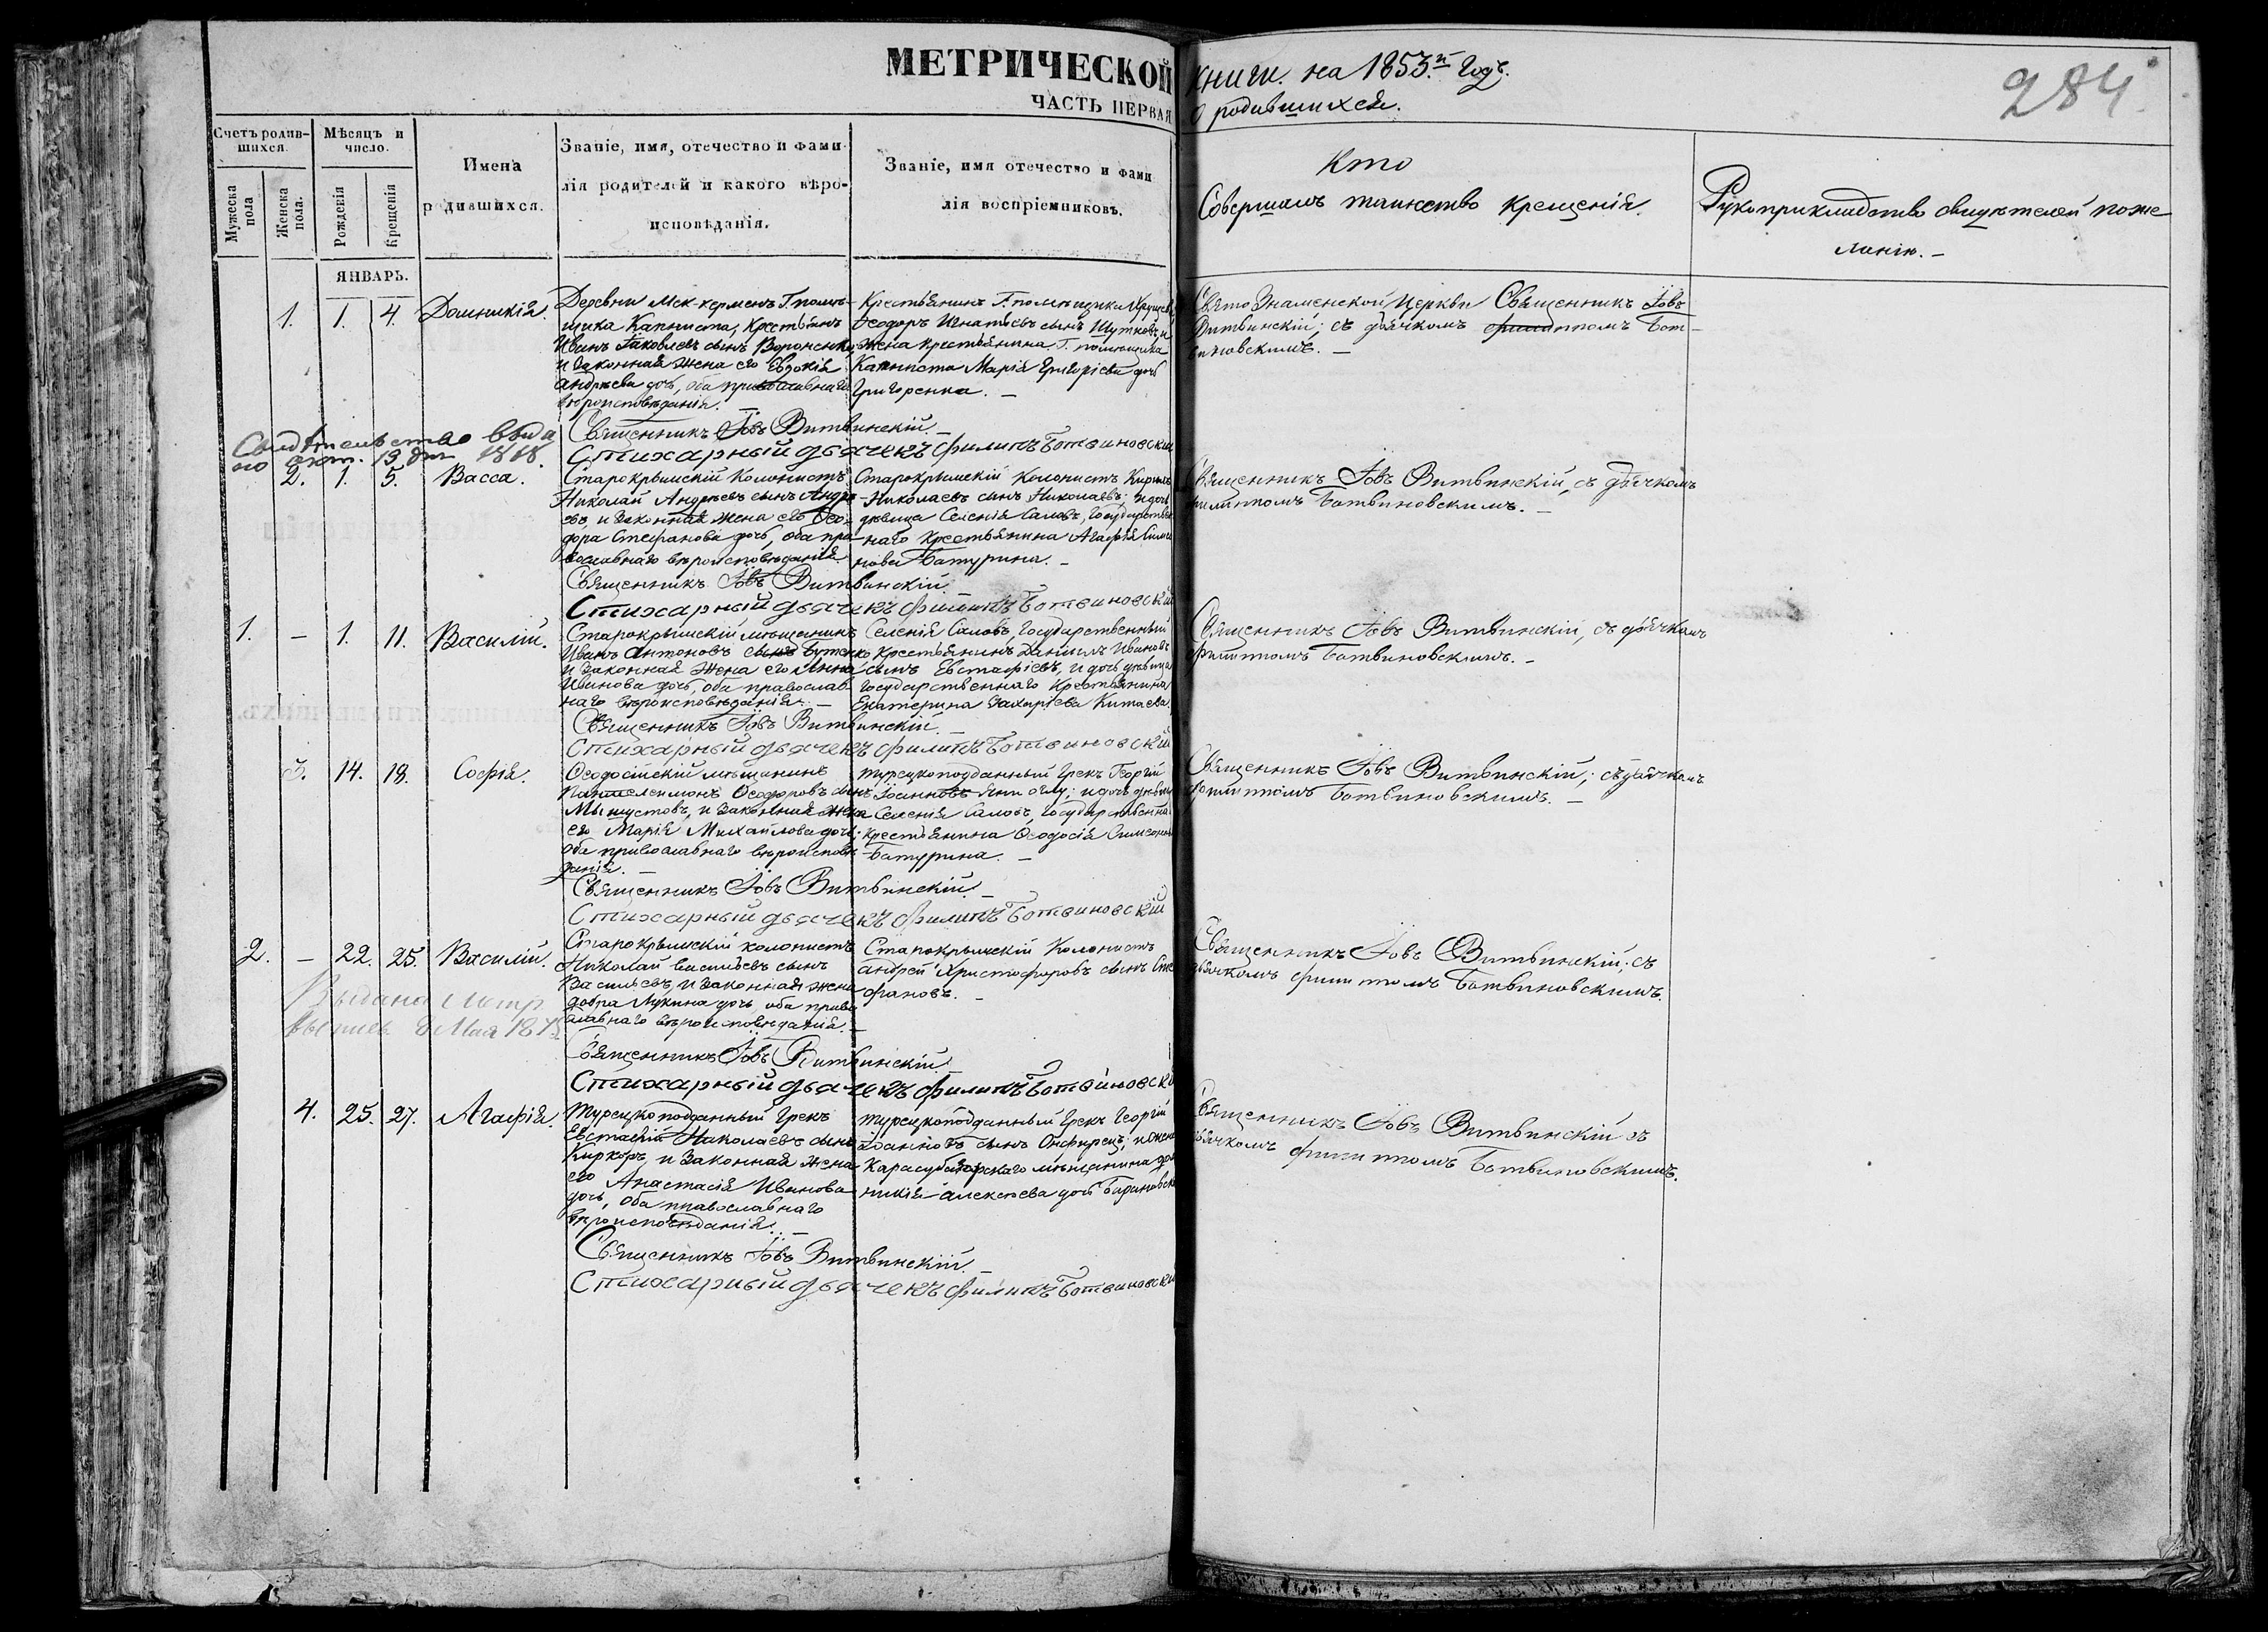 МЕТРИЧЕСКОЙ книги на 1853.й Годъ.
ЧАСТЬ ПЕРВАЯ О родившихся.
284.
Счетъ родив-
шихся.
Мужеска пола
Женска пола.
Мѣсяцъ и
число.
Рожденія
Крещенія
Имена
родившихся.
Званіе, имя, отечество и фами-
лія родителей и какого вѣро-
исповѣданія.
Званіе, имя отечество и фами
лія воспріемниковъ.
Кто
Совершалъ таинство крещенія.
Рукоприкладство свидѣтелей поже-
ланію. –
ЯНВАРЬ.
1. 1. 4. Домникія.
Деревни Мек-кермень Г. помѣ-
щика Капниста, крестьянъ
Иванъ Яковлевъ сынъ Вороненко,
и законная жена его Евдокія
Андреева дочь, оба православнаго
вѣроисповѣданія. –
Крестьянинъ Г. помѣщика
Ѳеодоръ Игнатьевъ сынъ Шутковъ, и
жена крестьянина Г. помѣщика
Капниста Марія Григоріева дочь
Григоренка. –
Свято Знаменской Церкви Священникъ Іовъ
Витвинскій, съ дьячкомъ Филиппомъ Бот-
виновскимъ. –
Священникъ Іовъ Витвинскій. –
Стихарный дьячекъ Филипъ Ботвиновскій
Свидѣтельство выда
но 13 1818.
2. 1. 5. Васса.
Старокрымскій Колонистъ
Николай Андреевъ сынъ Андре-
евъ, и законная жена его Ѳео-
дора Стефанова дочь, оба пра-
вославнаго вѣроисповѣданія.
Старокрымскій Колонистъ Кирилъ
Николаевъ сынъ Николаевъ; и дочь
дѣвица Селенія Саловъ, Государствен
наго крестьянина Агафія Симео
нова Батурина. –
Священникъ Іовъ Витвинскій, съ дьячкомъ
Филиппомъ Ботвиновскимъ. –
Священникъ Іовъ Витвинскій.
Стихарный дьячекъ Филипъ Ботвиновскій
1. – 1. 11. Василій.
Старокрымскій мѣщанинъ
Иванъ Антоновъ сынъ Бутенко
и законная жена его Анна
Иванова дочь, оба православ-
наго вѣроисповѣданія. –
Селенія Саловъ, Государственный
крестьянинъ Даніилъ Ивановъ
сынъ Евстафіевъ, и дочь дѣвица
Государственнаго Крестьянина
Екатерина Захаріева Китаева.
Священникъ Іовъ Витвинскій, съ дьячкомъ
Филиппомъ Ботвиновскимъ. –
Священникъ Іовъ Витвинскій. –
Стихарный дьячекъ Филипъ Ботвиновскій
3. 14. 18. Софія.
Ѳеодосійскій мѣщанинъ
Пантелеимонъ Ѳеодоровъ сынъ
и законная жена
его Марія Михайлова дочь;
оба православнаго вѣроисповѣ-
данія. –
Турецкоподданный Грекъ Георгій
Іоанновъ Яни оглу; и дочь дѣвица
Селенія Саловъ, Государственна
крестьянина Ѳеодосія Симеонова
Батурина. –
Священникъ Іовъ Витвинскій; съ дьячкомъ
Филиппомъ Ботвиновскимъ. –
Священникъ Іовъ Витвинскій. –
Стихарный дьячекъ Филипъ Ботвиновскій
2. – 22. 25. Василій.
Выдана метр.
выпись 8 Мая 187
Старокрымскій колонистъ
Николай Васильевъ сынъ
Васильевъ, и законная жена
Добра Лукина дочь, оба право
славнаго вѣроисповѣданія. –
Старокрымскій Колонистъ
Андрей Христофоровъ сынъ Сте
фановъ. –
Священникъ Іовъ Витвинскій; съ
дьячкомъ Филиппомъ Ботвиновскимъ.
Священникъ Іовъ Витвинскій. –
Стихарный дьячекъ Филипъ Ботвиновскій
4. 25. 27. Агафія.
Турецкоподданный Грекъ
Евстафій Николаевъ сынъ
Киркоръ, и законная жена
его Анастасія Иванова
дочь, оба православнаго
вѣроисповѣданія. –
Турецкоподданный Грекъ Георгій
Іоанновъ сынъ и жена
Карасубазарскаго мѣщанина Дом
никія Алексѣева дочь Барановска
Священникъ Іовъ Витвинскій съ
дьячкомъ Филиппомъ Ботвиновскимъ.
Священникъ Іовъ Витвинскій. –
Стихарный дьячекъ Филипъ Ботвиновскій